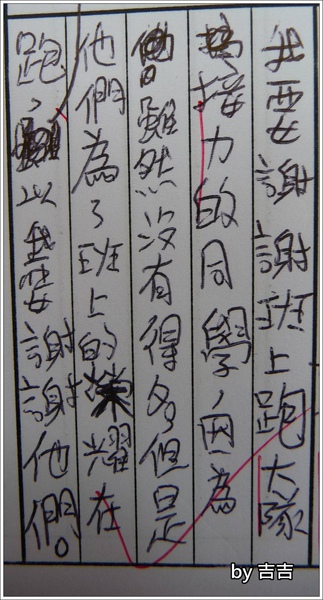 我要謝謝班上跑大隊
接力的同學，因為
雖然沒有得名但是
他們為了班上的榮耀在
跑，以我要謝謝他們。
by 吉吉